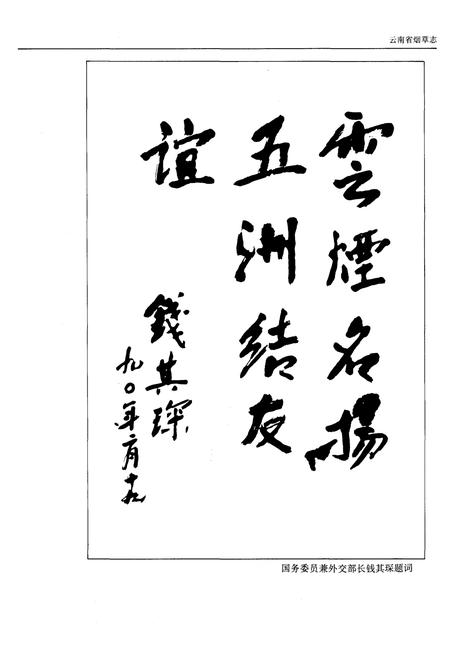 云南省烟草志
雲煙名揚
五洲结友
谊
錢其琛
九〇年二月十九
国务委员兼外交部长钱其琛题词